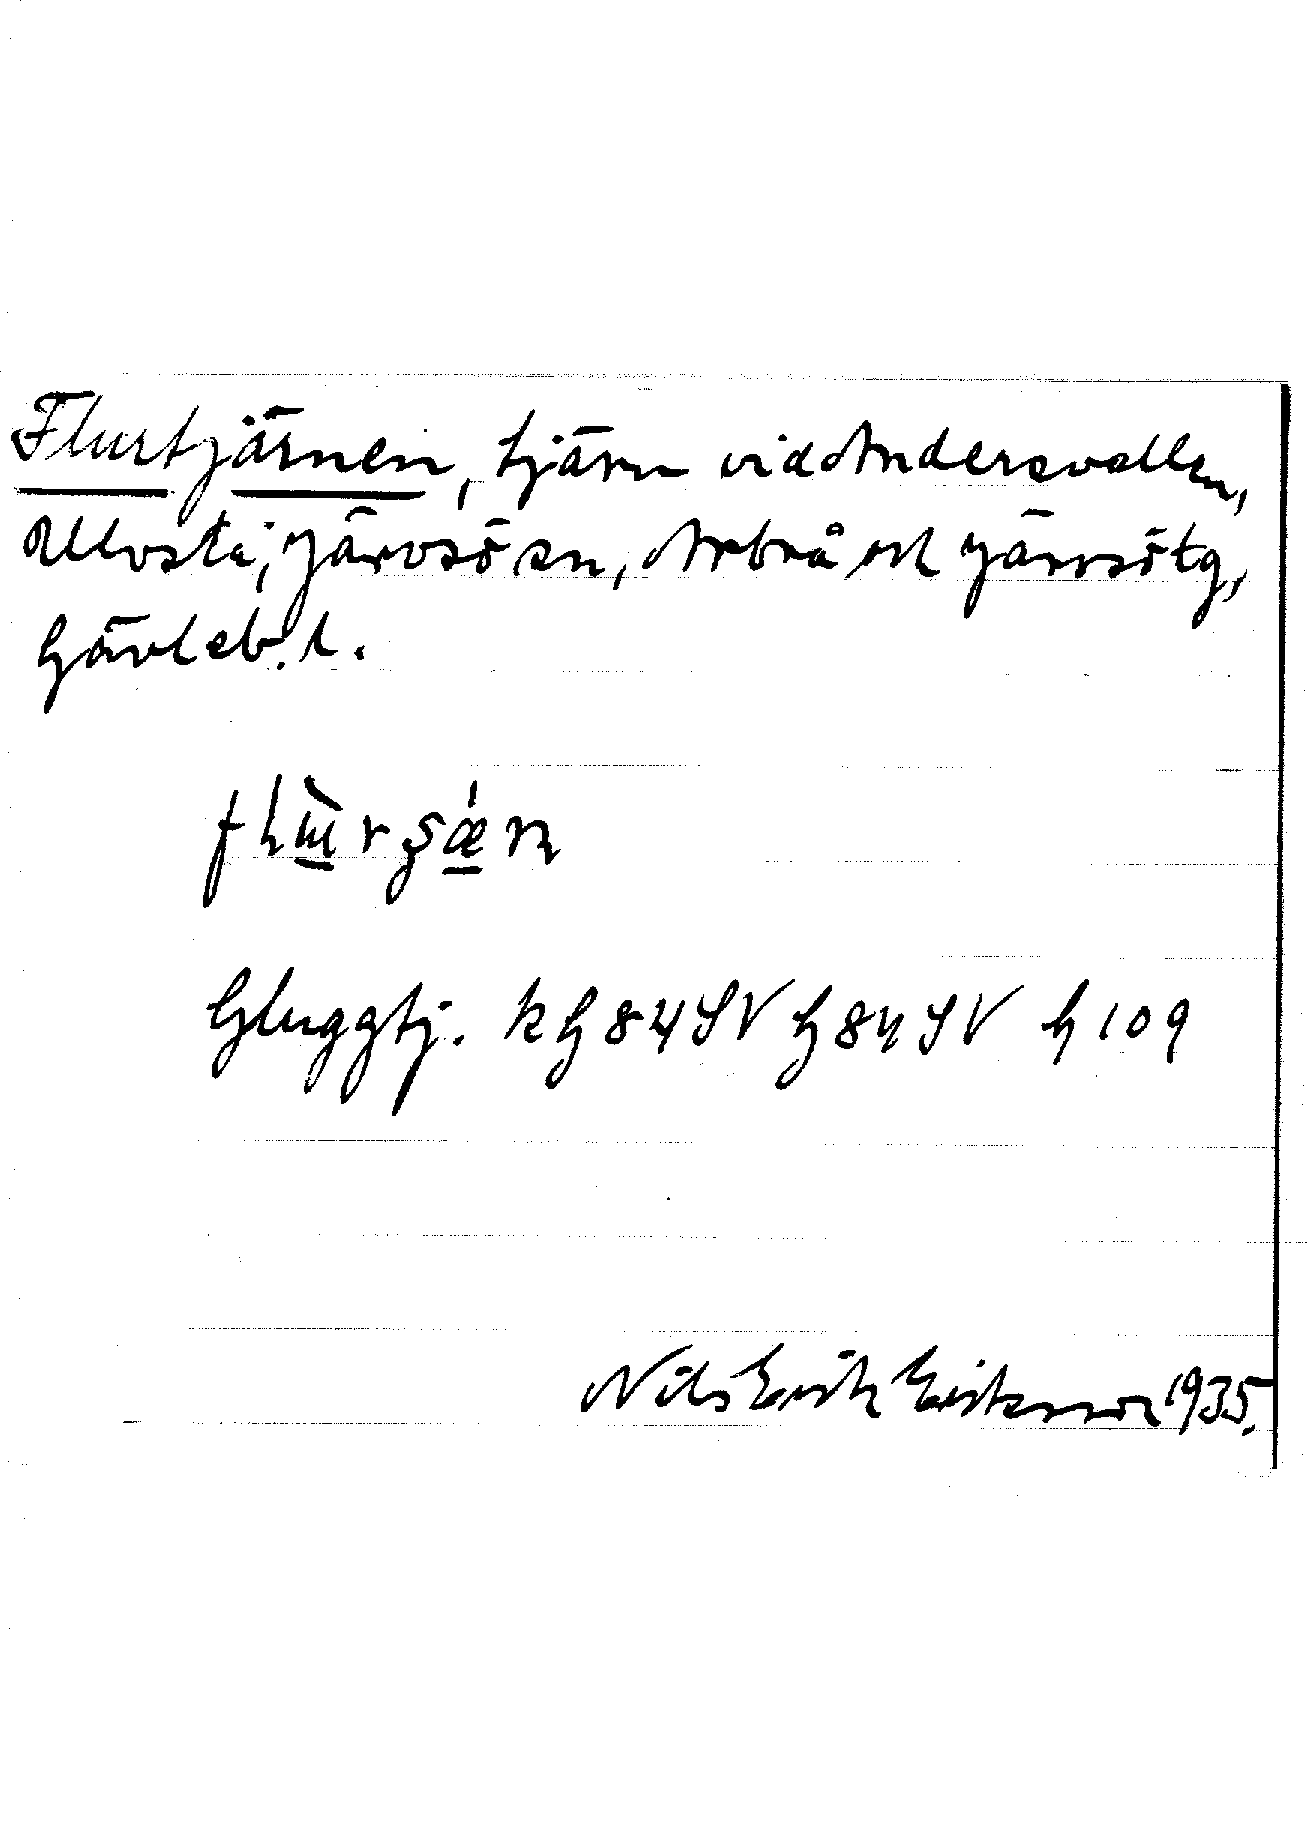 Flurtjärnen, tjärn vid Andersvallen,
Ullvsta, Järvsö sn, Arbrå och Järvsö tg,
Gävleb. l.
Gluggtj. k G 84 SV G 84 SV h 109
Nils Erik Eriksson 1935.